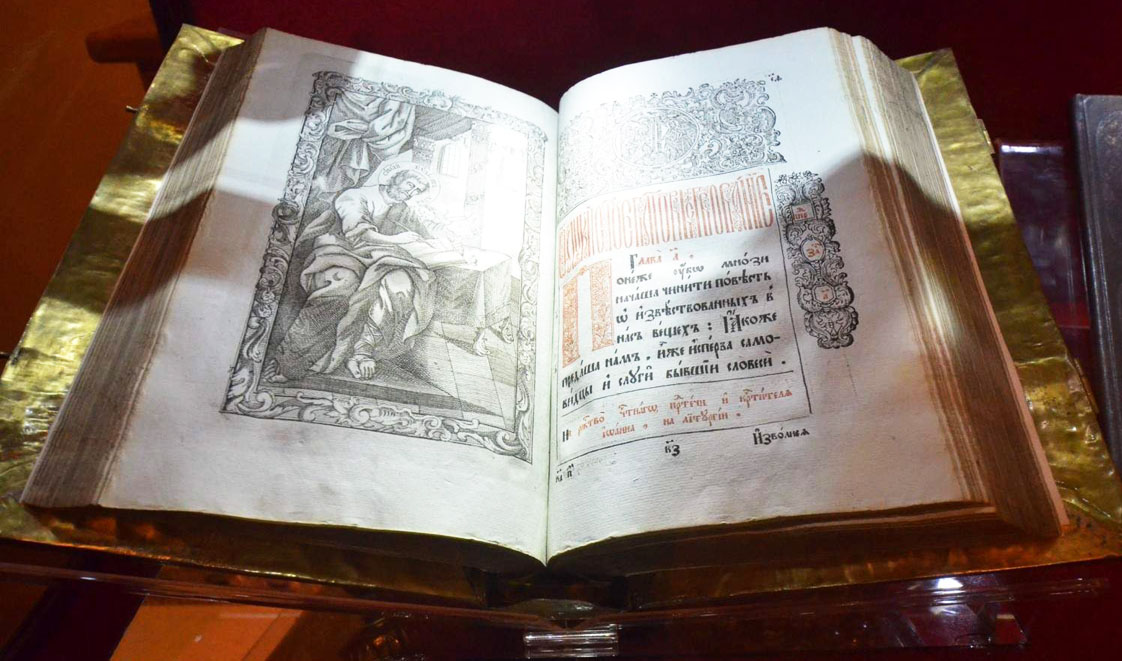 Глава а҃
Понеже ᲂубѡ мнози
начаша чинити повѣсть
ѡ извѣствованныхъ в
насъ вещехъ : Ꙗкоже
предаша намъ . иже исперва само-
видцы и слуги бывшии словесѝ .
рж҇тво чт҇нагѡ прⷣтечи и крⷭ҇тителѧ
іѡанна , на литургіи .
к҃з Изволисѧ